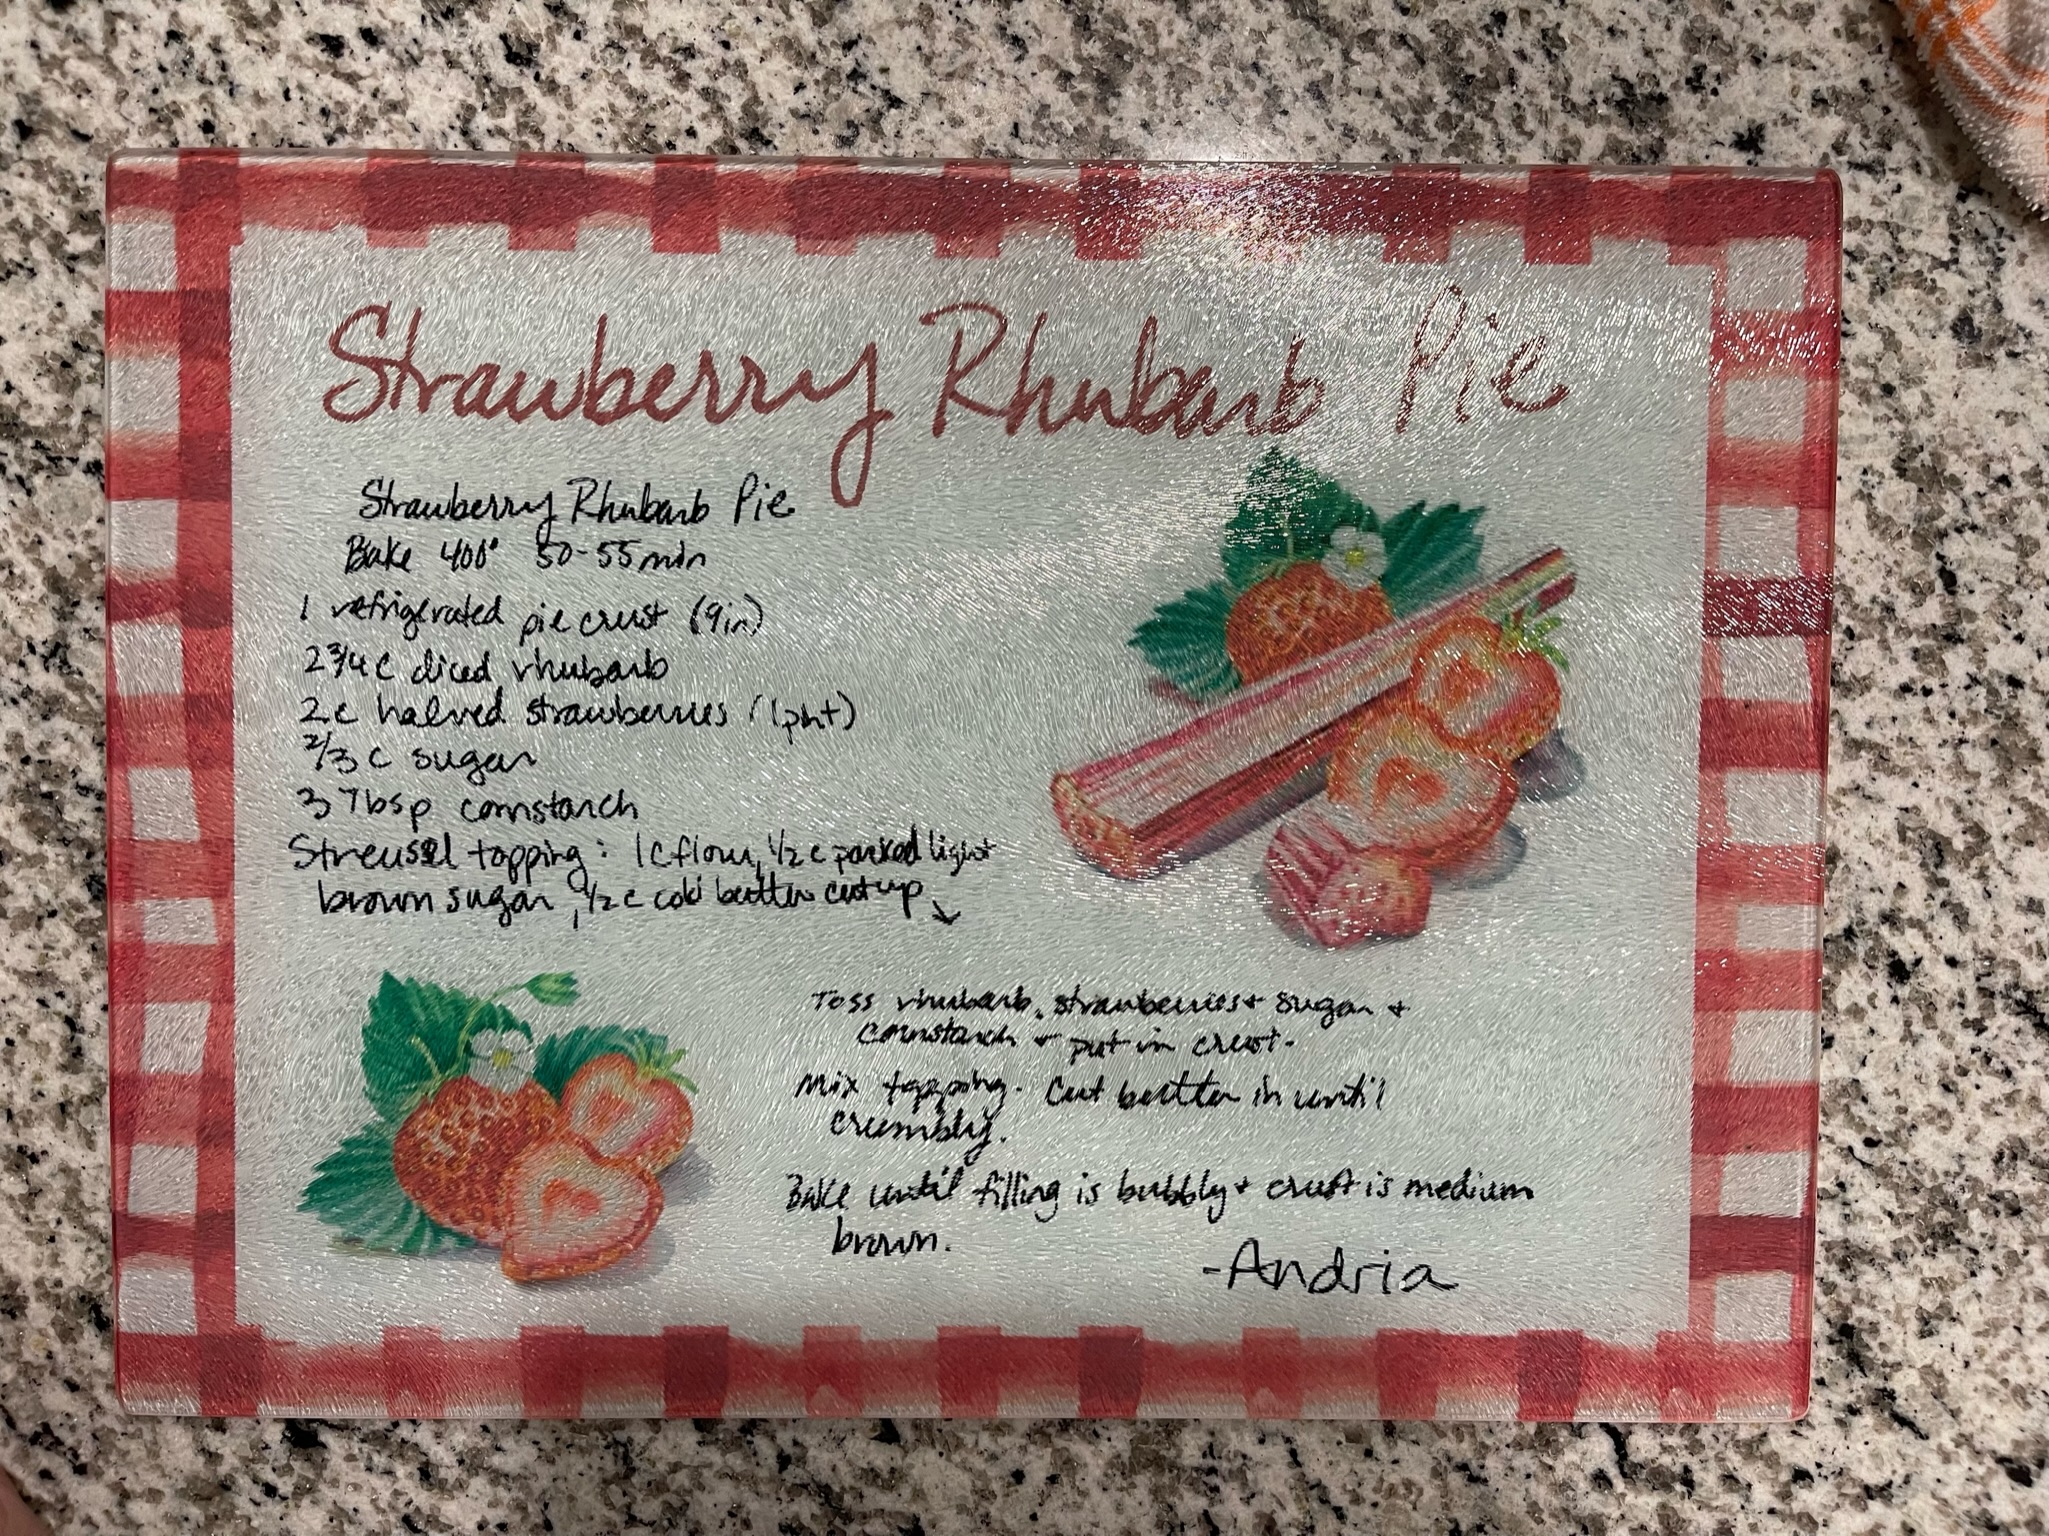 Strawberry Rhubarb Pie
Strawberry Rhubarb Pie
Bake 400° 50-55 min
1 refrigerated pie crust (9in)
2 3/4 c diced rhubarb
2 c halved strawberries (1 pint)
2/3 c sugar
3 Tbsp cornstarch
Streusel topping: 1 c flour, 1/2 c packed light
brown sugar, 1/2 c cold butter cut up ↘
Toss rhubarb, strawberries + sugar +
cornstarch + put in crust.
Mix topping. Cut butter in until
crumbly.
Bake until filling is bubbly + crust is medium
brown.
-Andria